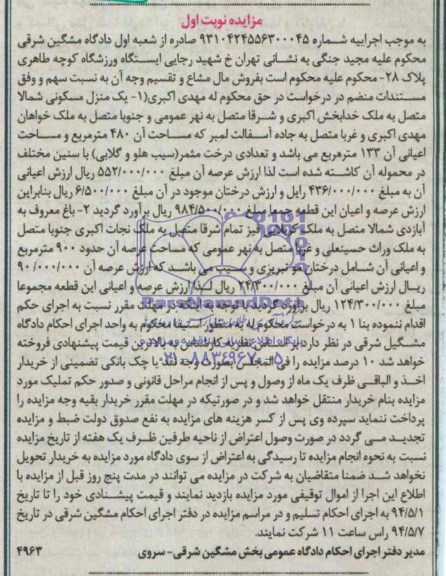 مزایده نوبت اول
به موجب اجراییه شماره ۹۳۱۰۴۲۴۵۵۶۳۰۰۰۴۵ صادره از شعبه اول دادگاه مشگین شرقی
محکوم علیه مجید جنگی به نشانی تهران خ شهید رجایی ایستگاه ورزشگاه کوچه طاهری
پلاک ۲۸- محکوم علیه محکوم است بفروش مال مشاع و تقسیم وجه آن به نسبت سهم و وفق
مستندات منضم در درخواست در حق محکوم له مهدی اکبری(۱- یک منزل مسکونی شمالا
متصل به ملک خدابخش اکبری و شرقا متصل به نهر عمومی و جنوبا متصل به ملک خواهان
مهدی اکبری و غربا متصل به جاده آسفالت لمبر که مساحت آن ۴۸۰ مترمربع و مساحت
اعیانی آن ۱۳۳ مترمربع می باشد و تعدادی درخت مثمر(سیب هلو و گلابی) با سنین مختلف
در محموله آن کاشته شده است لذا ارزش عرصه آن مبلغ ۵۵۲/۰۰۰/۰۰۰ ریال ارزش اعیانی
آن به مبلغ ۴۳۶/۰۰۰/۰۰۰ رایل و ارزش درختان موجود در آن مبلغ ۶/۵۰۰/۰۰۰ ریال بنابراین
ارزش عرصه و اعیان این قطعه جمعا مبلغ ۹۸۴/۵۰۰/۰۰۰ ریال برآورد گردید ۲- باغ معروف به
آبازدی شمالا متصل به ملک کربلایی فیز تمام شرقا متصل به ملک نجات اکبری جنوبا متصل
به ملک وراث حسینعلی و غربا متصل به نهر عمومی که مساحت عرصه آن حدود ۹۰۰ مترمربع
و اعیانی آن شامل درختان تبریزی و سیب می باشد که ارزش عرصه آن ۹۰/۰۰۰/۰۰۰
ریال ارزش اعیانی آن مبلغ ۲۴/۳۰۰/۰۰۰ ریال لذا ارزش عرصه و اعیانی این قطعه مجموعا
مبلغ ۱۲۴/۳۰۰/۰۰۰ ریال برآورد گردید با توجه به اینکه در مهلت مقرر نسبت به اجرای حکم
اقدام ننموده بنا به درخواست محکوم له به منظور استیفا محکوم به واحد اجرای احکام دادگاه
مشگیل شرقی در نظر دارد از طریق مزایده به بالاترین قیمت پیشنهادی فروخته
خواهد شد ۱۰ درصد مزایده را فی المجلس بصورت وجه نقد یا چک بانکی تضمینی از خریدار
اخذ و الباقی ظرف یک ماه از وصول و پس از انجام مراحل قانونی و صدور حکم تملیک مورد
مزایده بنام خریدار منتقل خواهد شد و در صورتیکه در مهلت مقرر خریدار بقیه وجه مزایده را
پرداخت ننماید سپرده وی پس از کسر هزینه های مزایده به نفع صدوق دولت ضبط و مزایده
تجدید می گردد در صورت وصول اعتراض از ناحیه طرفین ظرف یک هفته از تاریخ مزایده
نسبت به نحوه انجام مزایده تا رسیدگی به اعتراض از سوی دادگاه مورد مزایده به خریدار تحویل
نخواهد شد ضمنا متقاضیان به شرکت در مزایده می توانند در مدت پنج روز قبل از مزایده با
اطلاع این اجرا از اموال توقیفی مورد مزایده بازدید نمایند و قیمت پیشنادی خود را تا تاریخ
۹۴/۵/۱ به اجرای احکام تسلیم و در مراسم مزایده در دفتر اجرای احکام مشگین شرقی در تاریخ
۹۴/۵/۷ راس ساعت ۱۱ شرکت نمایند.
مدیر دفتر اجرای احکام دادگاه عمومی بخش مشگین شرقی- سروی ۴۹۶۳
۰۲۱-۸۸۳۴۹۶۷۰-۵